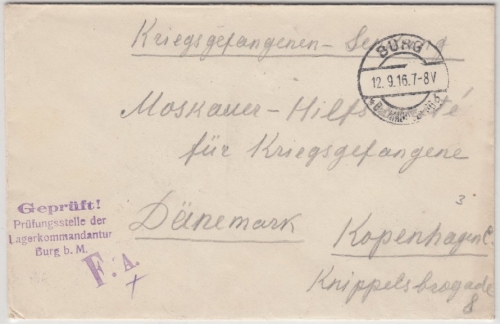 Kriegsgefangenen-Sendung
BURG
12.9.16.7-8V
Moskauer-Hilfskomité
für Kriegsgefangene
Geprüft!
Prüfungsstelle der
Lagerkommandantur
Burg b. M.
F. A.
3
Dänemark
Kopenhagen
Knippelsbrogade
8